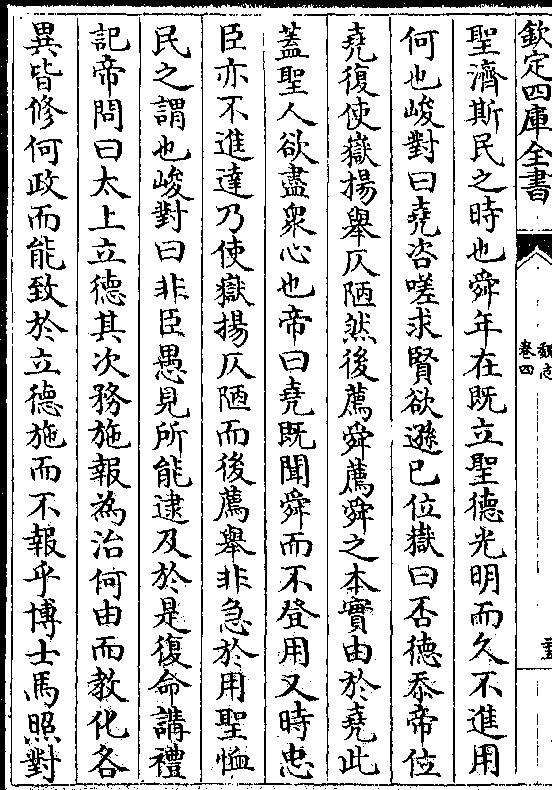 欽定四庫全書
魏志
卷四
聖濟斯民之時也舜年在既立聖德光明而久不進用
何也峻對曰堯咨嗟求賢欲遜已位嶽曰否德忝帝位
堯復使嶽揚舉仄陋然後薦舜薦舜之本實由於堯此
蓋聖人欲盡衆心也帝曰堯既聞舜而不登用又時忠
臣亦不進達乃使嶽揚仄陋而後薦舉非急於用聖恤
民之謂也峻對曰非臣愚見所能逮及於是復命講禮
記帝問曰太上立德其次務施報為治何由而教化各
異皆修何政而能致於立德施而不報乎博士馬照對